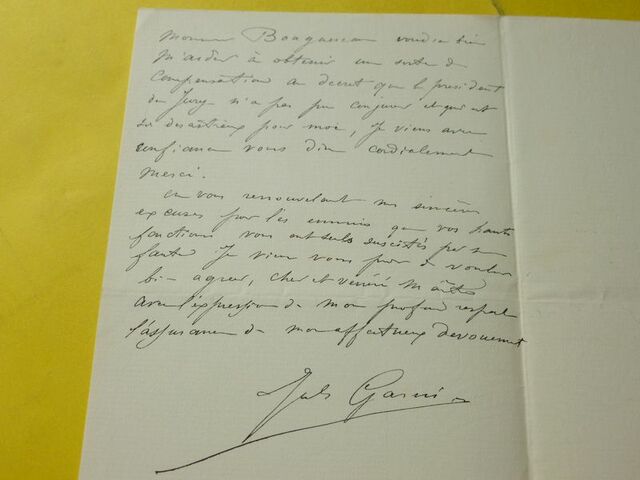 Monsieur Bouguereau voudra bien
m'aider à obtenir une sorte de
compensation au décret que le président
du Jury n'a pas pu conjurer et qui est
si désastreux pour moi, Je viens avec
confiance vous dire cordialement
merci.
en vous renouvelant mes sincères
excuses pour les ennuis que vos hautes
fonctions vous ont suscités
faute Je viens vous prier de vouloir
bien agréer, cher et vénéré Maître
avec l'expression de mon profond respect
l'assurance de mon affectueux dévouement
Jules Garnier